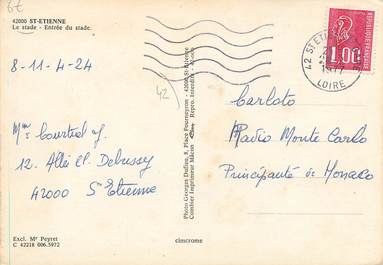 6€
42000 ST-ETIENNE
Le stade - Entrée du stade.
8-11-4-24
Mme Courtial J.
12. Allée Cl. Debussy
42000 St Etienne
Excl. Mr Peyret
C 42218 006.5972
42
Photo Georges Dufieu, 8, Place Fourneyron - 42000 St-Etienne
Combier Imprimeur Mâcon Repro. Interdite
cimcrome
42 ST ETIENNE
1977
LOIRE
REPUBLIQUE FRANÇAISE
1,00
Carloto
Radio Monte Carlo
Principauté de Monaco